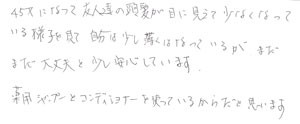 45才になって友人達の頭髪が目に見えて少なくなって
いる様子を見て 自分は少し薄くはなっているが まだ
まだ大丈夫と少し安心しています。
薬用シャンプーとコンディショナーを使っているからだと思います